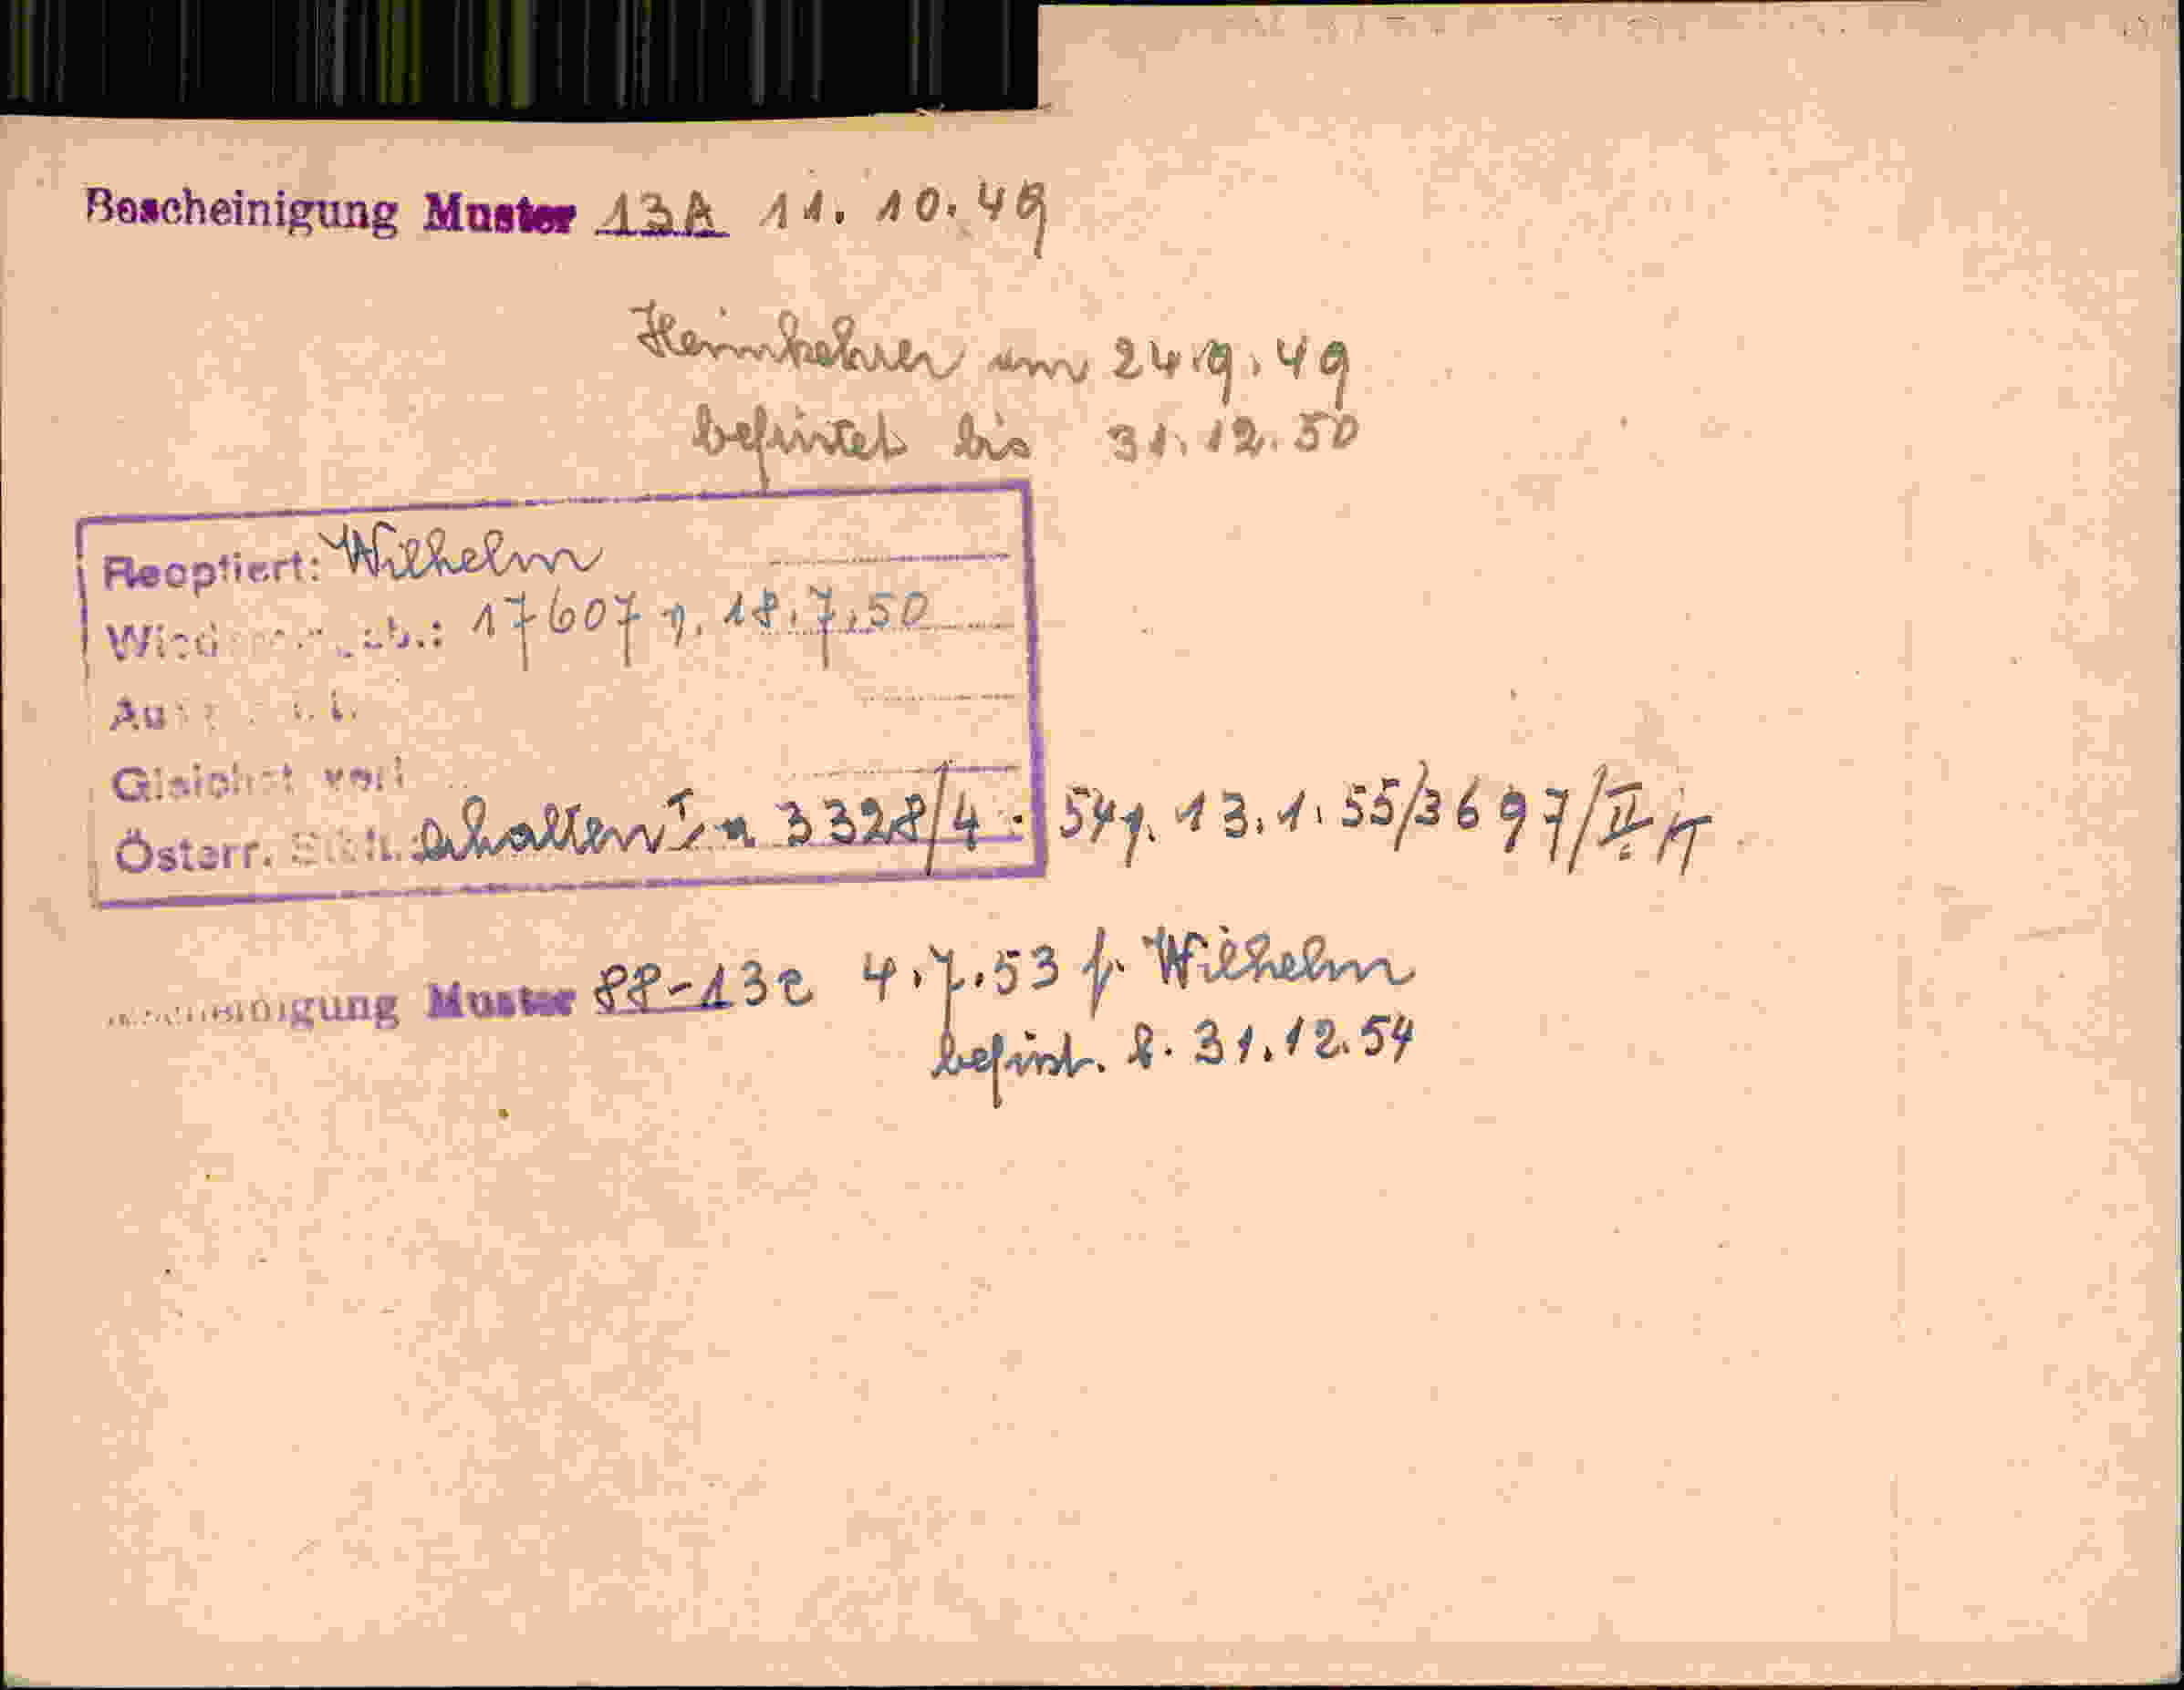 Bescheinigung Muster 13A 11. 10. 49
Heimkehrer am 24.9.49
befristet bis 31.12.50
Reoptiert: Wilhelm
17607 v. 18.7.50
Österr. erhalten Ia 3328/4 - 54 v. 13.1.55/3697/II
Muster 88-13e 4.7.53 f. Wilhelm
befrist. b. 31.12.54